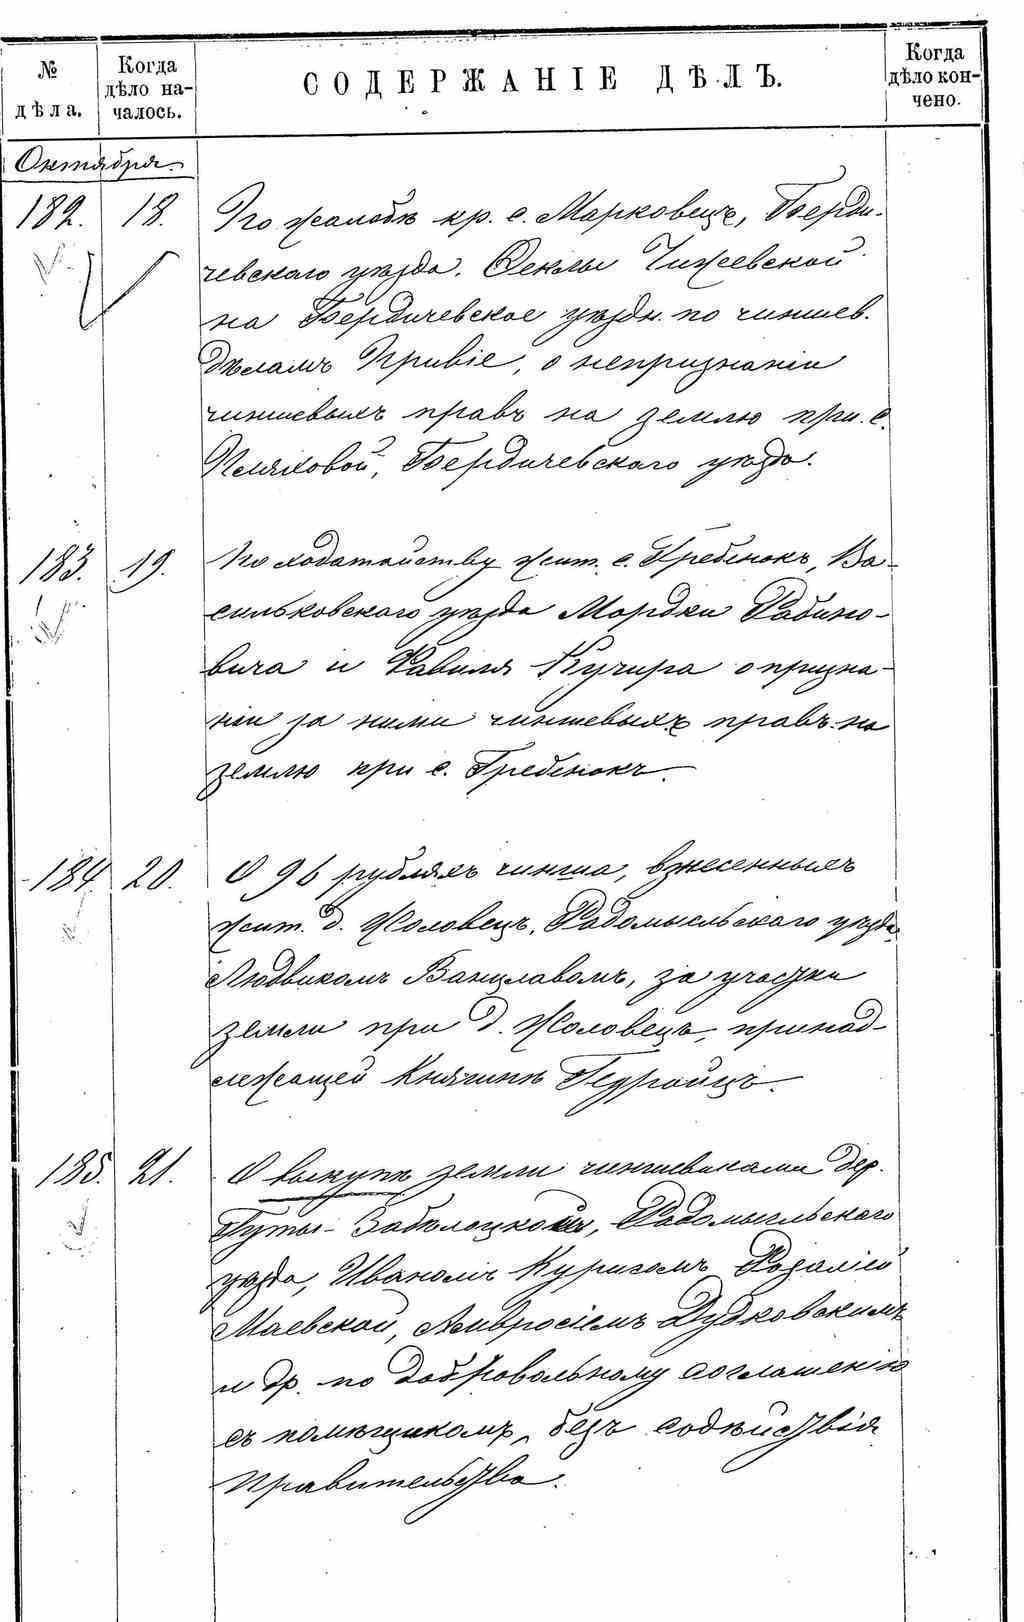 № дѣла.
Когда дѣло на-чалось.
СОДЕРЖАНІЕ ДѢЛЪ.
Когда дѣло кон-чено.
Октября
182. 18. По жалобѣ кр. с. Марковецъ, Берди-
чевскаго уѣзда. Феклы Чижевской
на Бердичевское уѣздн. по чиншев.
дѣламъ Прис­іе, о непризнаніи
чиншевыхъ правъ на землю при с.
Бердичевскаго уѣзда.
183. 19. По ходатайству жит. с. Гребенокъ, Ва-
сильковскаго уѣзда Мордки Рабино-
вича и Равиля Кучира о призна-
ніи за ними чиншевыхъ правъ на
землю при с. Гребенокъ.
184. 20. О 96 рубляхъ чинша, взнесенныхъ
жит. д. Жоловецъ, Радомысльскаго уѣзда
Людвикомъ Ванцлавомъ, за участки
земли при д. Жоловецъ, принад-
лежащей Княгинѣ Гедройцъ.
185. 21. О выкупѣ земли чиншевиками дер.
Гуты-Забѣлоцкой, Радомысльскаго
уѣзда, Иваномъ Куригомъ Розаліей
Маевской, Амвросіемъ Дудковскимъ
и др. по добровольному соглашенію
съ помѣщикомъ, безъ содѣйствія
Правительства.